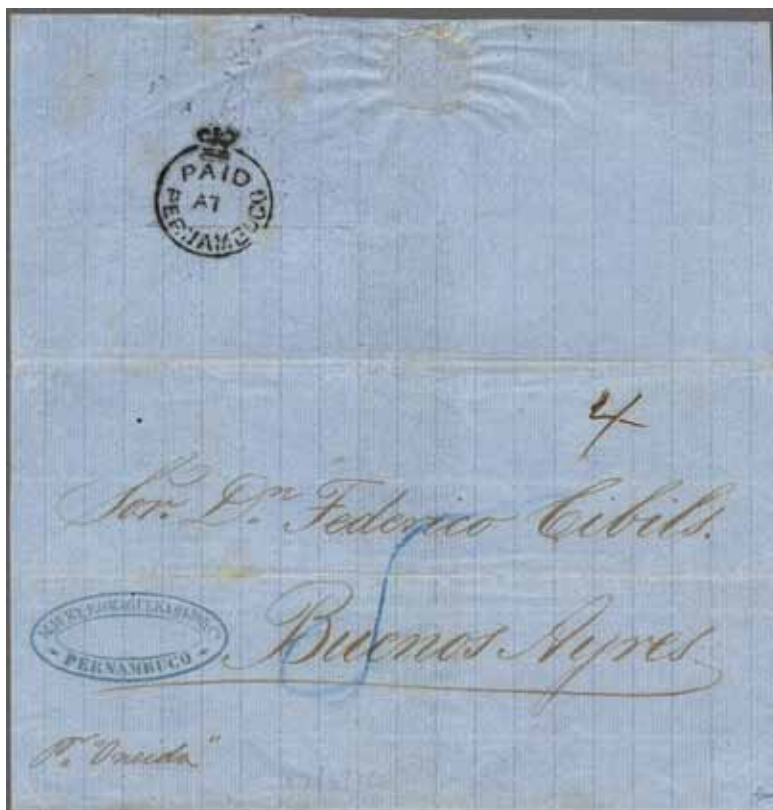 PAID
AT
PERNAMBUCO
4
Sor. Dn Federico Cibils.
PERNAMBUCO
Buenos Ayres
pr. "Oneida"